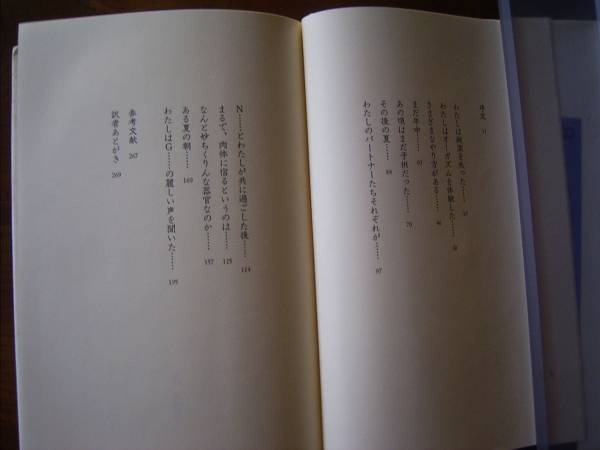 序文 11
わたしは純潔を失った…… 17
わたしはオーガズムを体験した……
さまざまなやり方がある…… 46
まだ年中…… 61
あの頃はまだ子供だった…… 75
その後の夏…… 89
わたしのパートナーたちそれぞれが…… 97
N……とわたしが共に過ごした後…… 114
まるで、肉体に宿るというのは…… 125
なんと妙ちくりんな器官なのか…… 157
ある夏の朝…… 169
わたしはG……の麗しい声を聞いた…… 195
参考文献 267
訳者あとがき 269